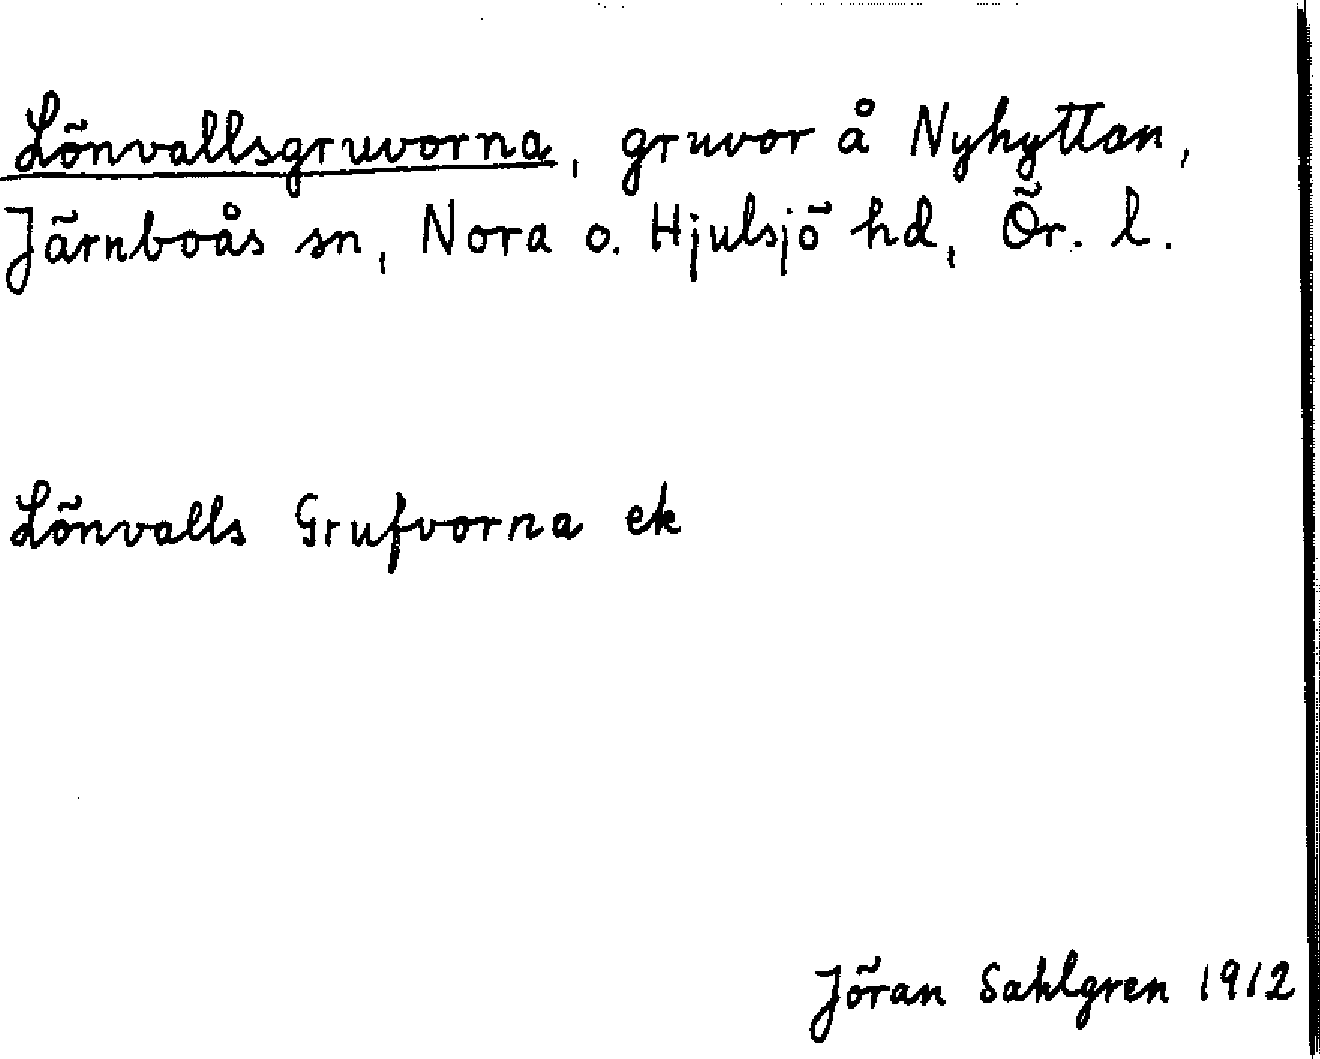 Lönvallsgruvorna, gruvor å Nyhyttan,
Järnboås sn, Nora o. Hjulsjö hd, Ör. l.
Lönvalls Grufvorna ek
Jöran Sahlgren 1912